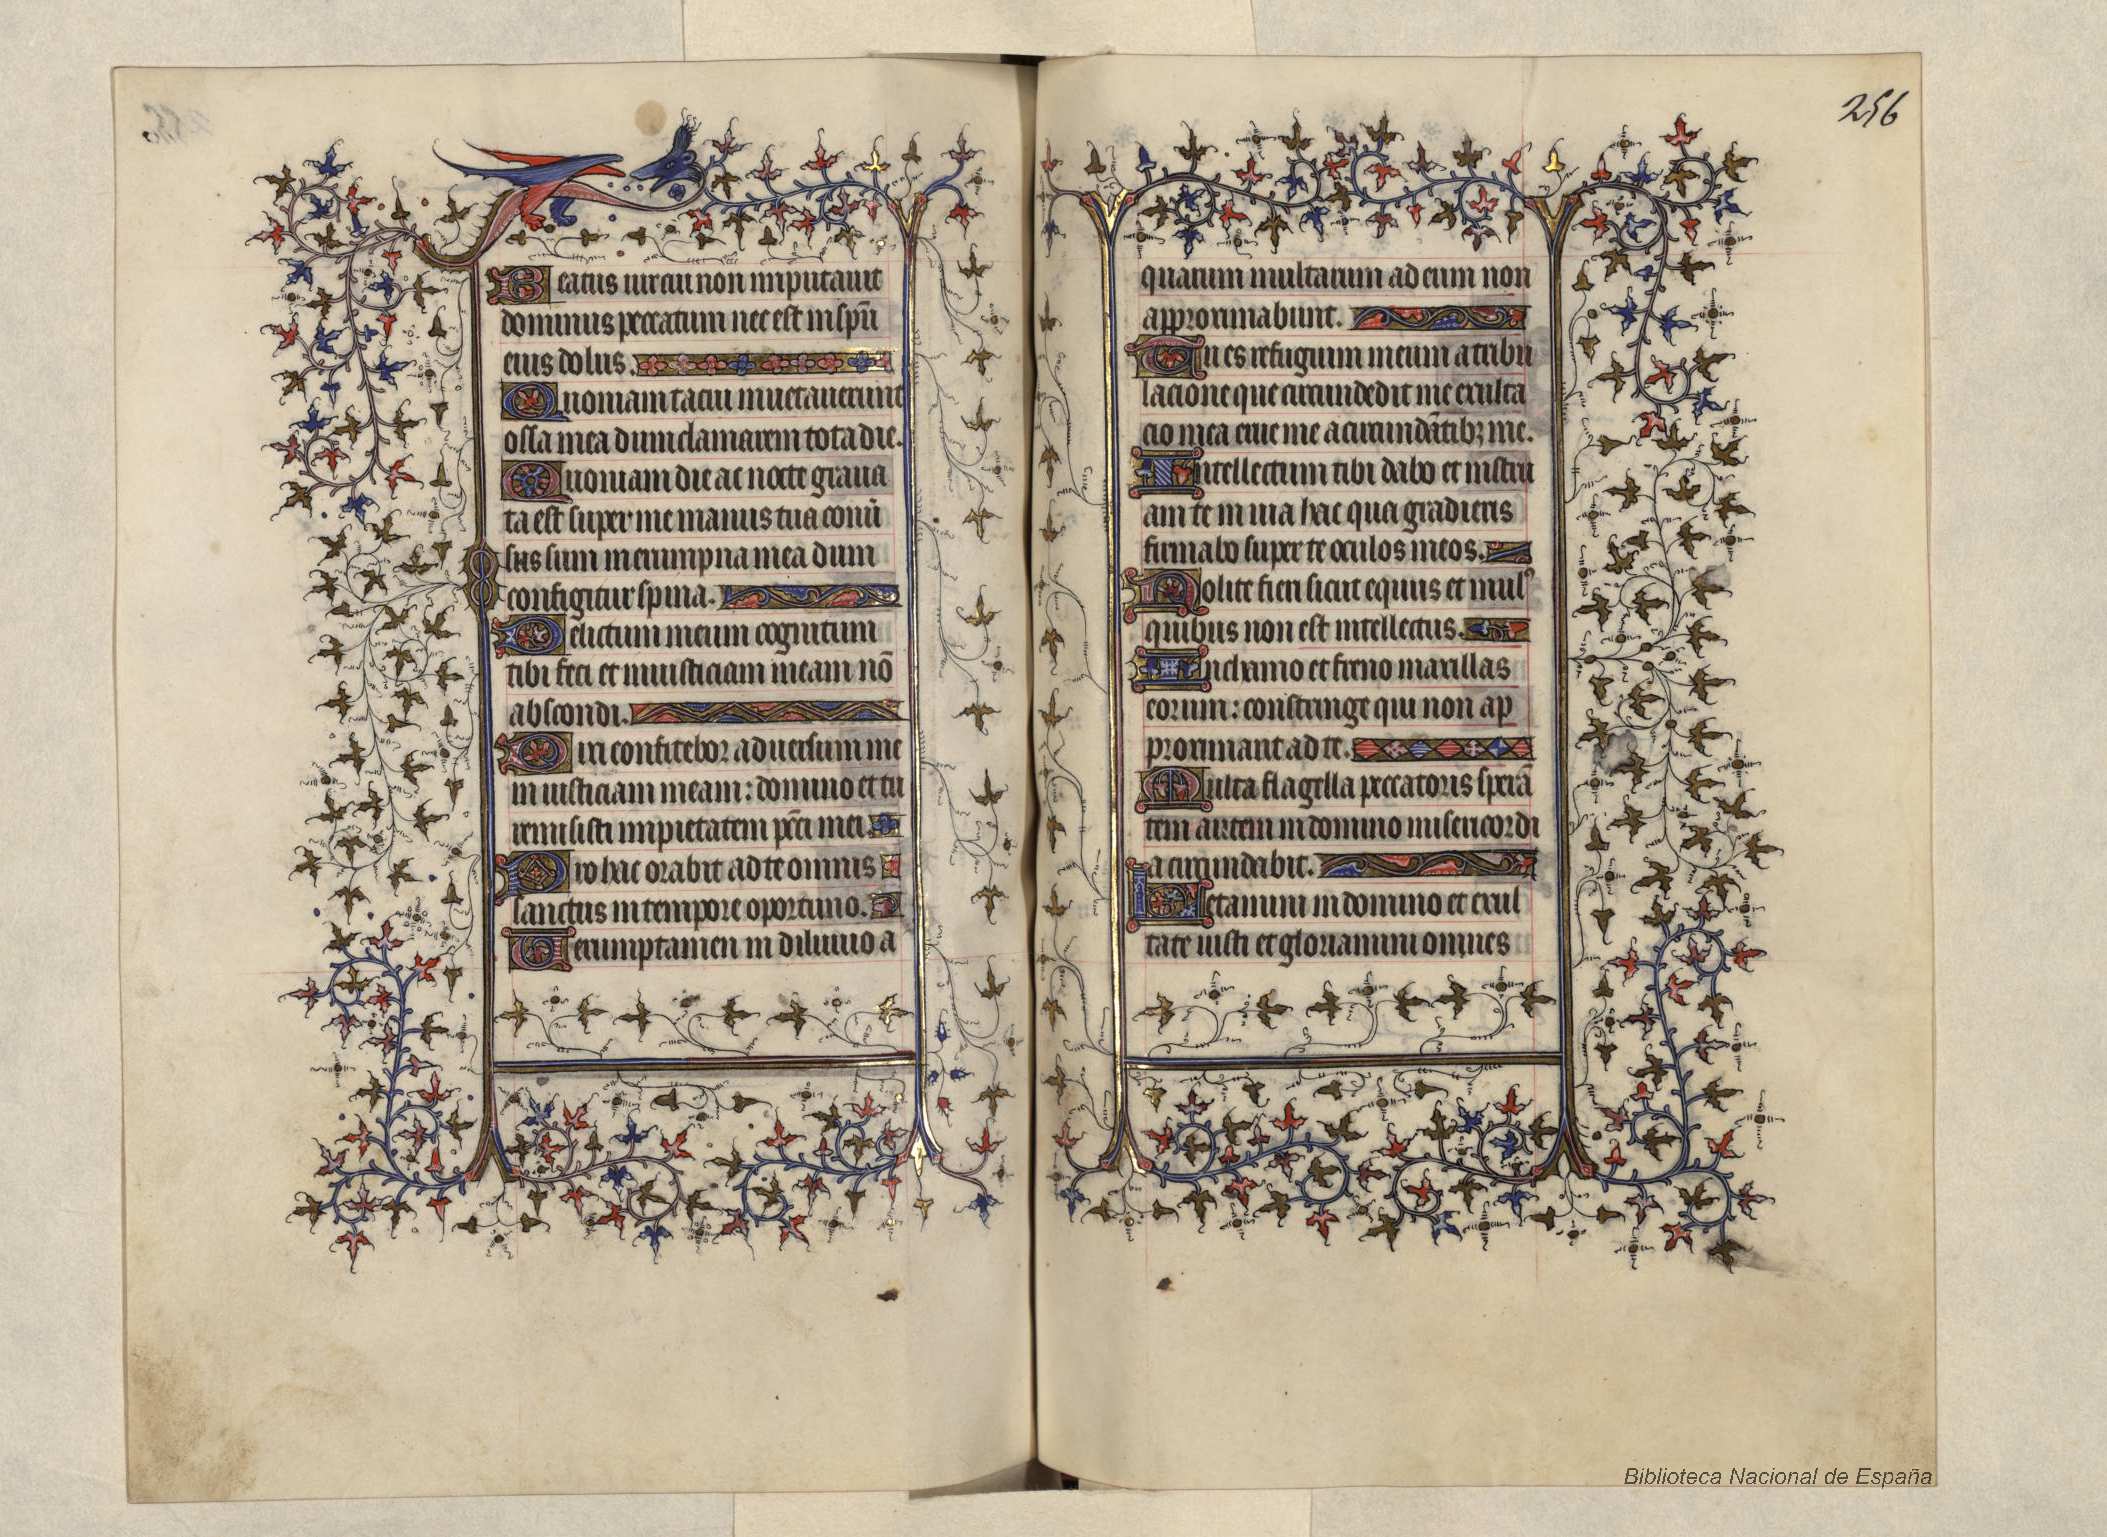 Beatus vir cui non imputavit
dominus peccatum nec est in spū
eius dolus.
Quoniam tacui inuetauerunt
ossa mea dum clamarem tota die.
Quoniam die ac nocte graua
ta est super me manus tua conū
sus sum in erumpna mea dum
configitur spina.
Delictum meum cognitum
tibi feci et iniusticiam meam nō
abscondi.
Dixi confitebor aduersum me
iniusticiam meam: domino et tu
remisisti impietatem pcc̄i mei.
Pro hac orabit ad te omnis
sanctus in tempore oportuno.
Uerumptamen in diluuio a
256
quarum multarum ad eum non
approximabunt.
Tu es refugium meum a tribu
lacione que circundedit me exulta
cio mea erue me a circundātibꝫ me.
Intellectum tibi dabo et instru
am te in uia hac qua gradieris
firmabo super te oculos meos.
Nolite fieri sicut equus et mulꝰ
quibus non est intellectus.
In chamo et freno maxillas
eorum: constringe qui non ap
proximant ad te.
Multa flagella peccatoris sperā
tem autem in domino misericordi
a circundabit.
Letamini in domino et exul
tate iusti et gloriamini omnes
Biblioteca Nacional de España